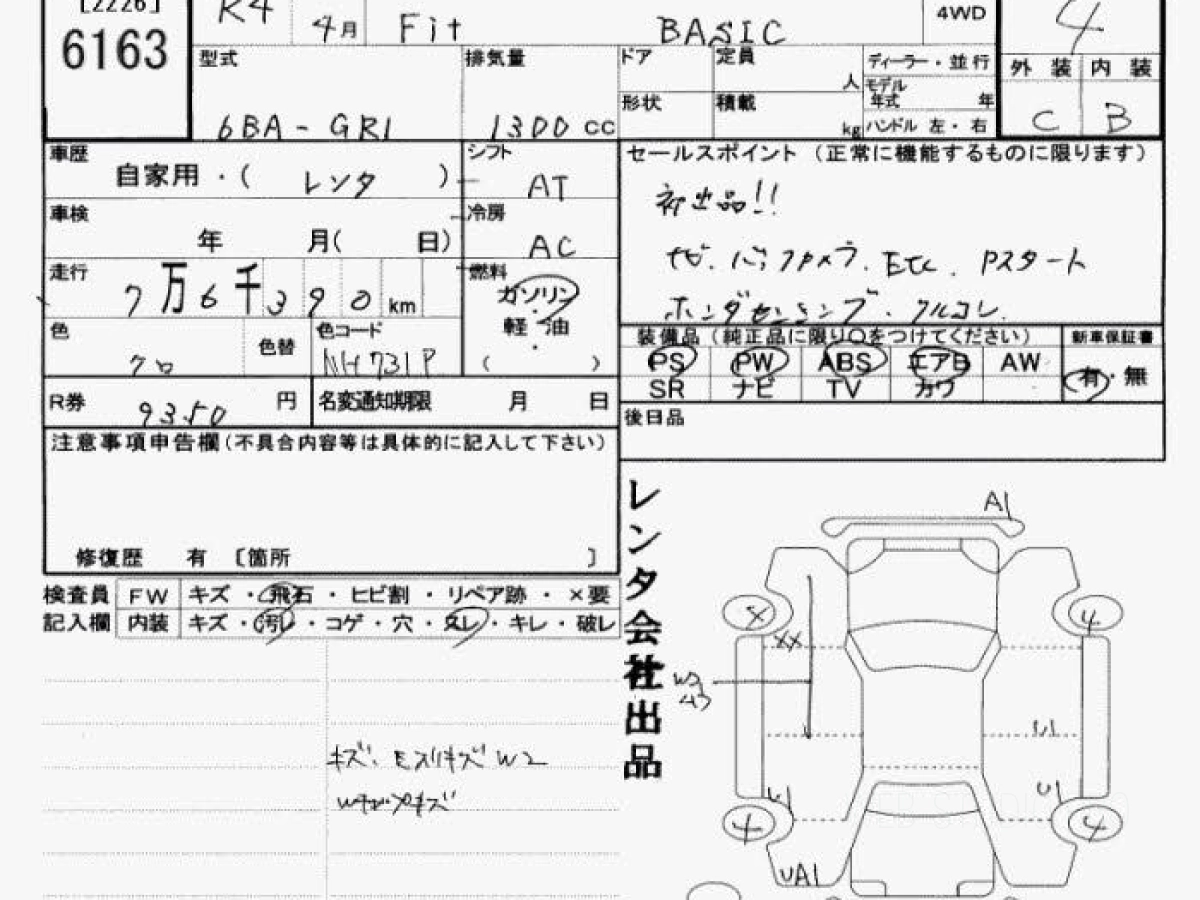 [2226]
6163
R4 4月 Fit BASIC 4WD 4
型式 6BA-GR1
排気量 1300 cc
ドア
定員 人
形状
積載 kg
ディーラー・並行
モデル年式 年
ハンドル 左・右
外装 内装
C B
車歴 自家用・( レンタ )
シフト AT
車検 年 月( 日)
冷房 AC
走行 7万6千390 km
燃料 ガソリン・軽油・( )
色 クロ 色替
色コード NH731P
R券 9350 円
名変通知期限 月 日
セールスポイント (正常に機能するものに限ります)
初出品!!
ナビ. バックカメラ. Etc. Pスタート
ホンダセンシング. クルコン.
装備品 (純正品に限り○をつけてください) 新車保証書
PS PW ABS エアB AW 有・無
SR ナビ TV カワ
後日品
注意事項申告欄(不具合内容等は具体的に記入して下さい)
修復歴 有 〔箇所 〕
検査員 FW キズ・飛石・ヒビ割・リペア跡・×要
記入欄 内装 キズ・汚レ・コゲ・穴・スレ・キレ・破レ
キズ. W2
レンタ会社出品
A1
4
XX
U1
U1
4
4
UA1